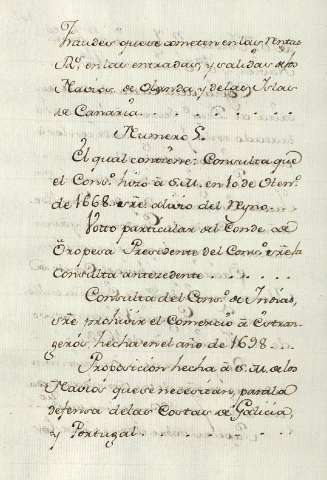 fraudes que se cometen en las Rentas
R.s en las entradas, y salidas de los
Navios de Olanda, y de las Islas
de Canaria . . . . . . .
Numero 5.
El qual contiene: Consulta que
el Cons.o hizo à S.M. en 10 de
de 1668 sre alivio del Reyno.
Votto particular del Conde de
Oropesa Presidente del Cons.o sre la
Consulta antecedente . . . . .
Consulta del Cons.o de Indias,
sre prohivir el Comercio à Estran
geros, hecha en el año de 1698.
Proposicion hecha à S.M. de los
Navios que se necesitàn, para la
defensa de las Costas de Galicia,
y Portugal . . . . . . .